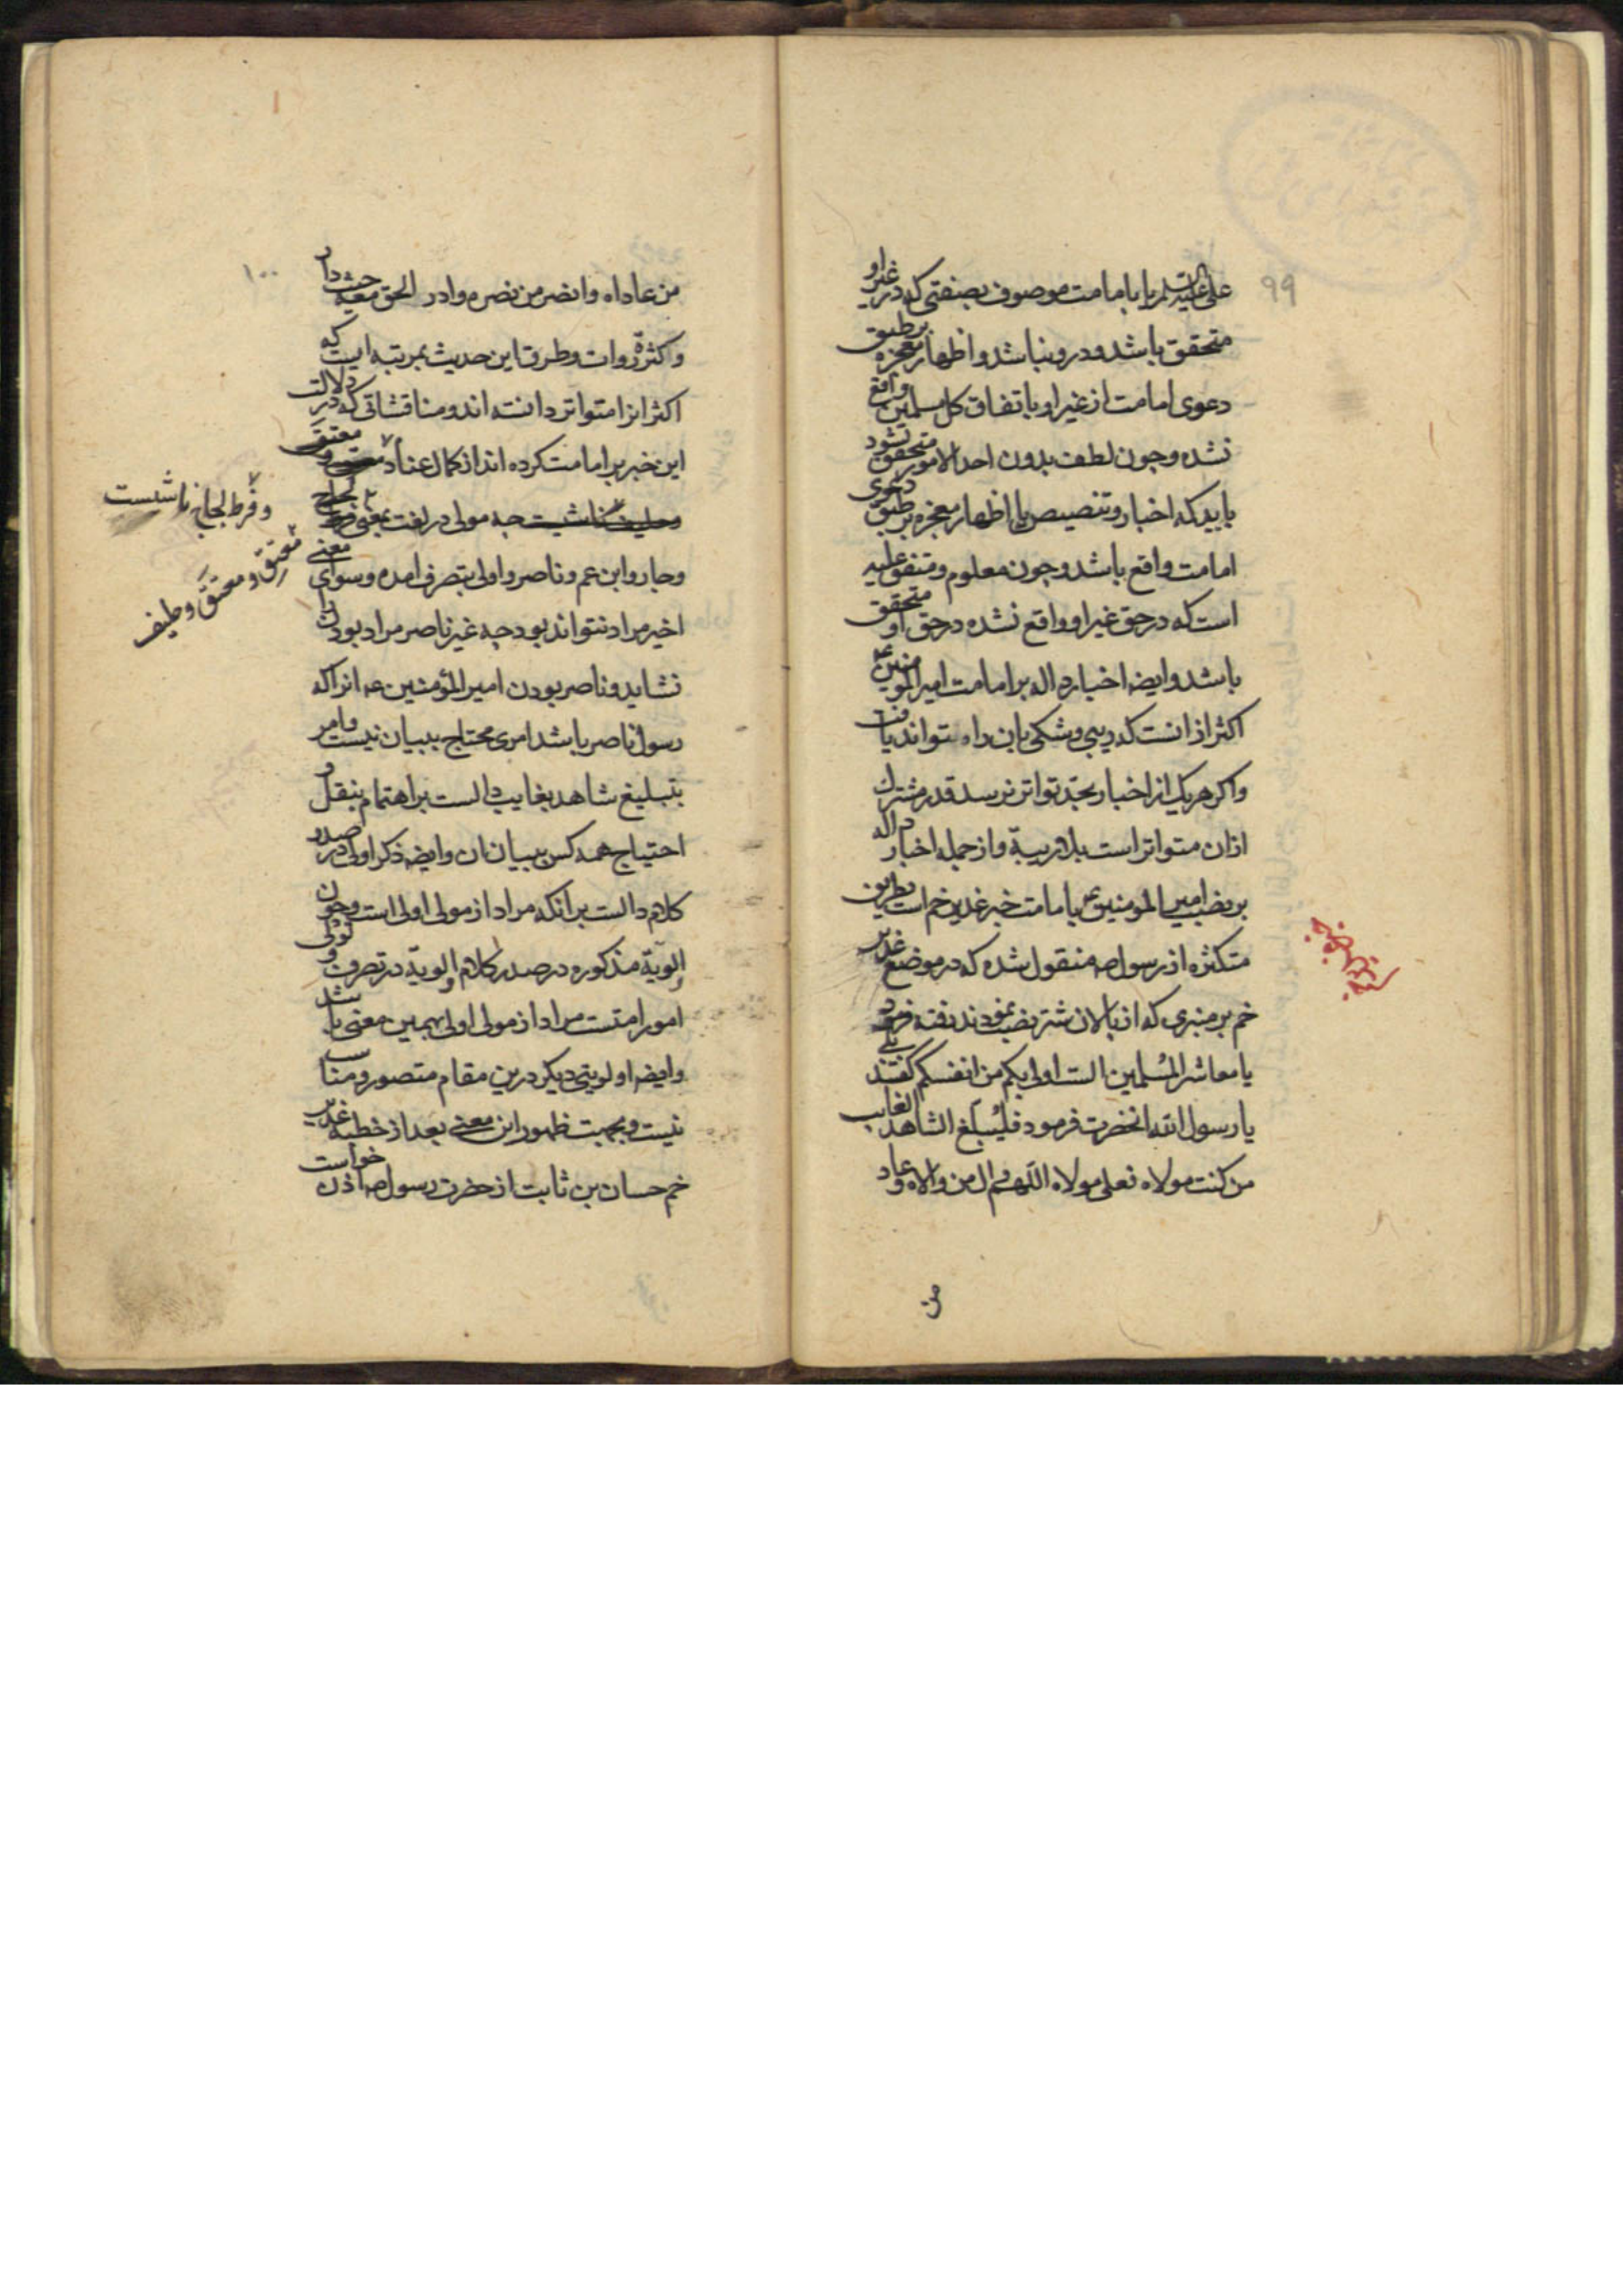 ۹۹
علی علیه السلم را بامامت موصوف بصفتی که در غیر او
متحقق باشد و درو نباشد و اظهار معجزه بر طبق
دعوی امامت از غیر او باتفاق کل مسلمین واقع
نشده و چون لطف بدون احد الامور متحقق نشود
باید که اخبار و تنصیص یا اظهار معجزه بر طبق دعوی
امامت واقع باشد و چون معلوم و متفق علیه
است که در حق غیر او واقع نشده در حق او متحقق
باشد و ایضا اخبار داله بر امامت امیر المومنین ع
اکثر از انست که ریبی و شکی بان راه تواند یافت
و اکر هر یک از اخبار بحد تواتر نرسد قدر مشترک
ازان متواتر است بلا ریبة و از جمله اخبار داله
بر نصب امیر المومنین ع بامامت خبر غدیر خم است بطریق
متکثره از رسول ص منقول شده که در موضع غدیر
خم بر منبری که از پالان شتر نصب نمودند رفته فرمود
یا معاشر المسلمین الست اولی بکم من انفسکم کفتند بلی
یا رسول الله انحضرت فرمود فلیبلغ الشاهد الغایب
من کنت مولاه فعلی مولاه اللهم وال من والاه و عاد
من
۱۰۰
من عاداه و انصر من نصره و ادر الحق معه حیث دار
و کثرة روات و طرق این حدیث بمرتبه ایست که
اکثر انرا متواتر دانسته اند و مناقشاتی که در دلالت
این خبر بر امامت کرده اند از کمال عناد
و فرط لجاج ناشیست
چه مولی در لغت بمعنی
معتق و معتق و حلیف
و جار و ابن عم و ناصر و اولی بتصرف امده و سوای معنی
اخیر مراد نتواند بود چه غیر ناصر مراد بودن
نشاید و ناصر بودن امیر المؤمنین ع انرا که
رسول ناصر باشد امری محتاج ببیان نیست و امر
بتبلیغ شاهد بغایب دالست بر اهتمام بنقل و
احتیاج همه کس ببیان ان و ایضا ذکر اولی در صدر
کلام دالست بر انکه مراد از مولی اولی است و چون
اولویة مذکوره در صدر کلام اولویة در تصرف و تولی
امور امتست مراد از مولی اولی بهمین معنی باشد
و ایضا اولویتی دیکر درین مقام متصور و مناسب
نیست و بجهت ظهور این معنی بعد از خطبه غدیر
خم حسان بن ثابت از حضرت رسول ص اذن خواست